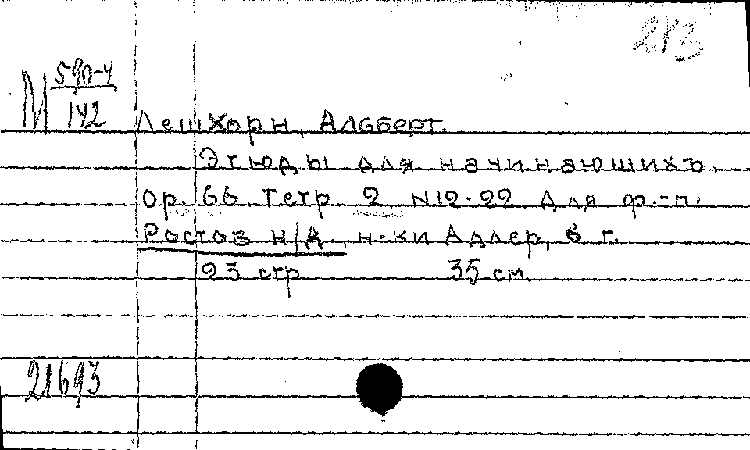 213
М 590-4
142
Лешхорн, Альберт.
Этюды для начинающихъ.
Op. 66 Тетр. 2 N12-22 Для ф.-п.
Ростов н/Д, н-ки Адлер, б г.
23 стр 35 см.
21693